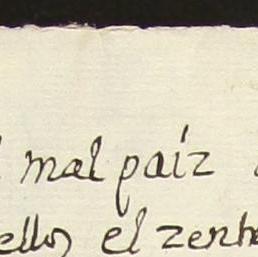 mal paiz
ellos el zenh